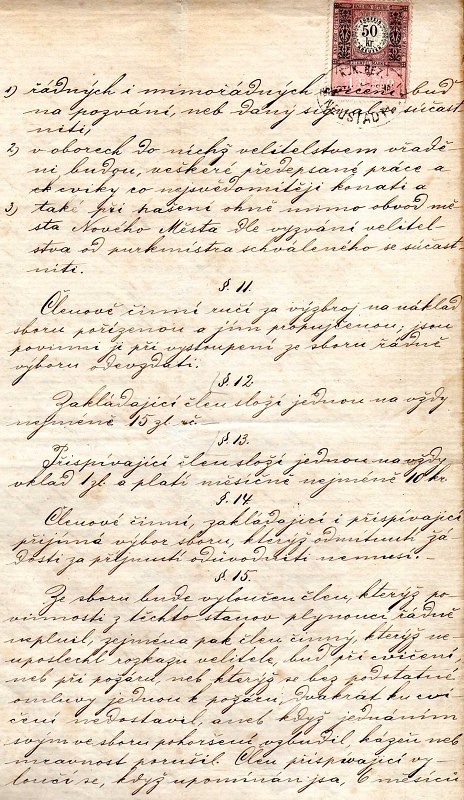 50
kr.
K.K. BEZ
NEUSTADT
1) řádných i mimořádných cvičení buď
na pozvání, neb daný signal se súčast
niti,
2) v oborech do nichž velitelstvem vřadě
ni budou, veškeré předepsané práce a
cviky co nejsvědomitěji konati a
3) také při hašení ohně mimo obvod mě
sta Nového Města dle vyzvání velitel-
stva od purkmistra schváleného se súčast
niti.
§. 11.
Členové činní ručí za výzbroj na náklad
sboru pořízenou a jim propujčenou; jsou
povinni ji při vystoupení ze sboru řádně
výboru odevzdati.
§. 12
Zakládající člen složí jednou na vždy
nejméně 15 zl.
§. 13.
Přispívající člen složí jednou na vždy
vklad 1 zl. a platí měsíčně nejméně 10 kr.
§. 14
Členové činní, zakládající i přispívající
přijímá výbor sboru, kterýž odmítnutí žá
dosti za přijmutí odůvodniti nemusí.
§. 15.
Ze sboru bude vyloučen člen, kterýž po-
vinnosti z těchto stanov plynoucí řádně
neplnil, zejména pak člen činný, kterýž ne-
uposlechl rozkazu velitele, buď při cvičení,
neb při požáru, neb kterýž se bez podstatné
omluvy jednou k požáru, dvakrát ku cvi
čení nedostavil, aneb když jednáním
svým ve sboru pohoršení vzbudil, kázeň neb
mravnost porušil. Člen přispívající vy-
loučí se, když upomínán jsa, 6 měsíců